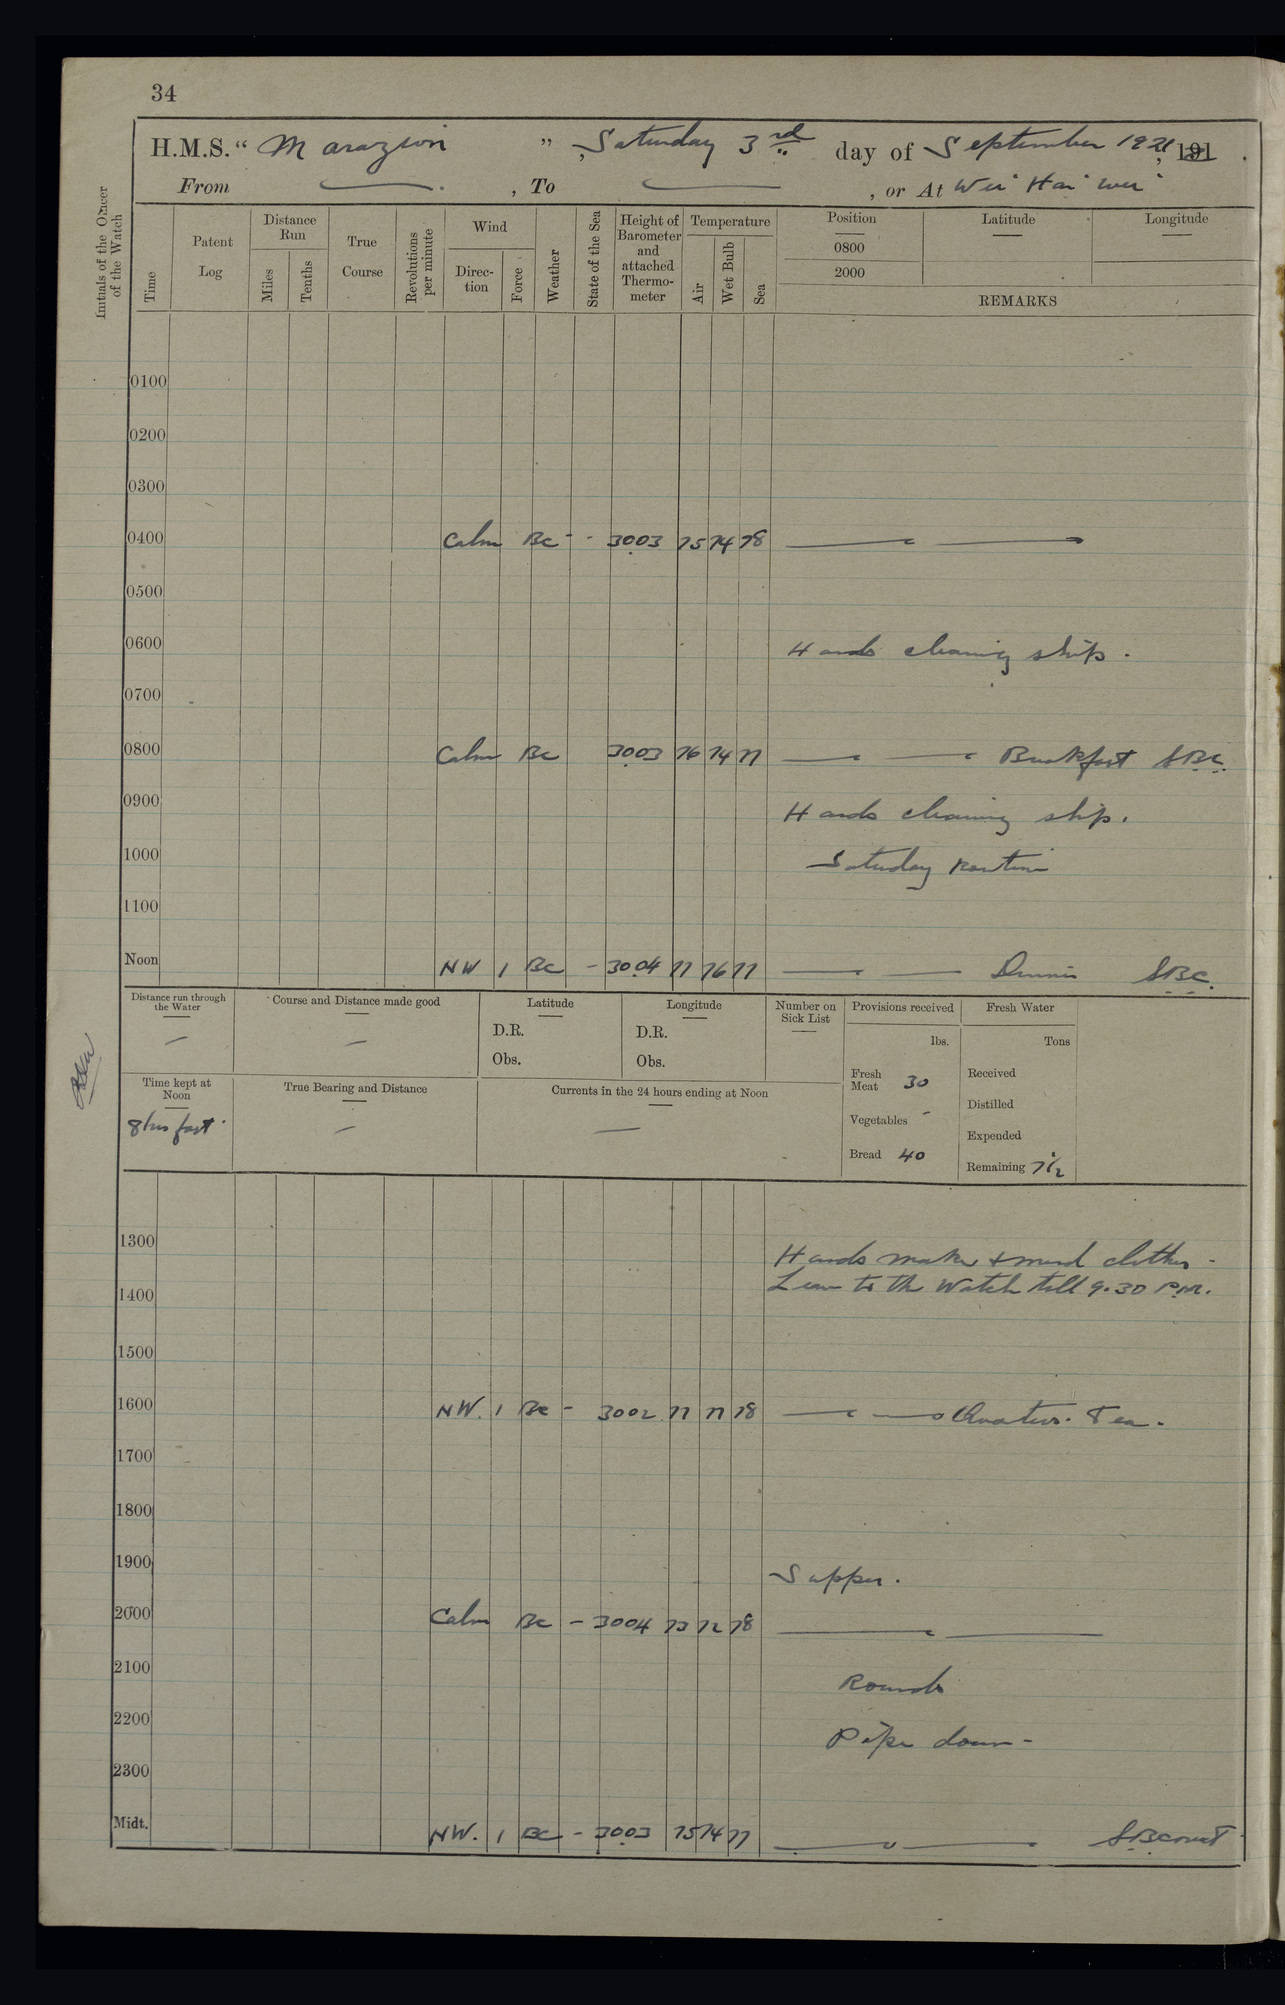 34
H.M.S. “ Marazion ” , Saturday 3rd day of September 1921 , 191 .
From , To , or At Wei Hai Wei
Initials of the Officer of the Watch
Time
Patent Log
Distance Run
Miles
Tenths
True Course
Revolutions per minute
Wind
Direc-tion
Force
Weather
State of the Sea
Height of Barometer and attached Thermo-meter
Temperature
Air
Wet Bulb
Sea
Position Latitude Longitude
0800
2000
REMARKS
0100
0200
0300
0400 Calm BC - - 30.03 75 74 78
0500
0600 Hands cleaning ship.
0700
0800 Calm BC 30.03 76 74 77 Breakfast SBC.
0900 Hands cleaning ship.
1000 Saturday Routine
1100
Noon NW 1 BC - 30.04 77 76 77 Dinner SBC.
Distance run through the Water
—
Course and Distance made good
—
Latitude
D.R.
Obs.
Longitude
D.R.
Obs.
Number on Sick List
Provisions received
lbs.
Fresh Meat 30
Vegetables -
Bread 40
Fresh Water
Tons
Received
Distilled
Expended
Remaining 7 1/2
Time kept at Noon
8 hrs fast.
True Bearing and Distance
—
Currents in the 24 hours ending at Noon
—
1300 Hands make & mend clothes -
1400 Leave to the Watch till 9.30 P.M.
1500
1600 NW. 1 BC - 30 02 77 77 78 Quarters. Tea.
1700
1800
1900 Supper.
2000 Calm BC - 30 04 73 72 78
2100 Rounds
2200 Pipe down -
2300
Midt. NW. 1 BC - 30.03 75 74 77